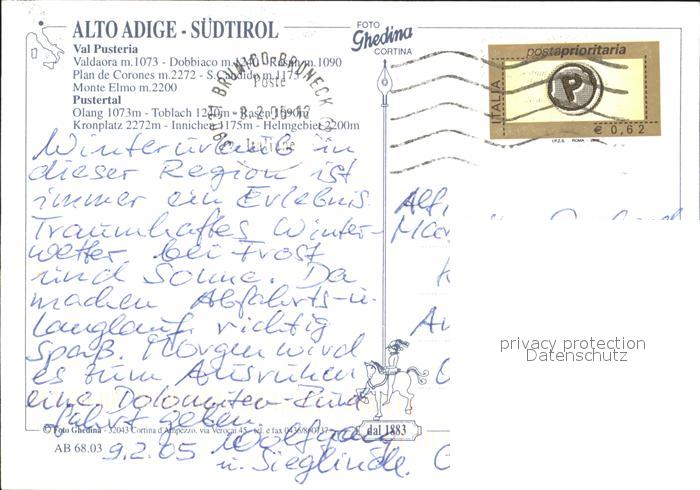 ALTO ADIGE - SÜDTIROL
Val Pusteria
Valdaora m.1073 - Dobbiaco m.1240 - Rasun m.1090
Plan de Corones m.2272 - S.Candido m.1175
Monte Elmo m.2200
Pustertal
Olang 1073m - Toblach 1240m - Rasen 1090m
Kronplatz 2272m - Innichen 1175m - Helmgebiet 2200m
FOTO
Ghedina
CORTINA
BRUNICO-BRUNECK
Poste
Italiane
postaprioritaria
ITALIA
P
€ 0,62
I.P.Z.S. ROMA
Winterurlaub in
dieser Region ist
immer ein Erlebnis.
Traumhaftes Winter-
wetter bei Frost
und Sonne. Da
machen Abfahrts-u.
Langlauf richtig
Spaß. Morgen wird
es zum Ausruhen
eine Dolomiten-Rund
fahrt geben.
Wolfgang
u. Sieglinde.
9.2.05
privacy protection
Datenschutz
© Foto Ghedina - 32043 Cortina d'Ampezzo, via Verocai 45
dal 1883
AB 68.03